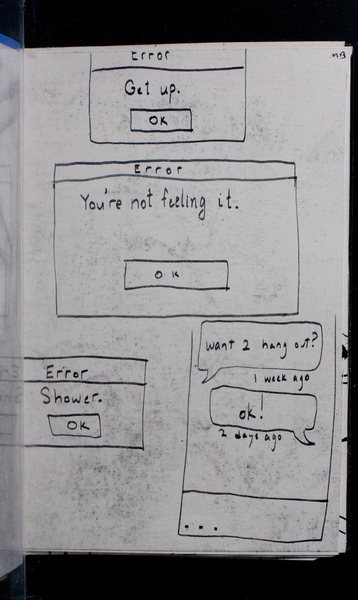 MB
Error
Get up.
OK
Error
You're not feeling it.
OK
Error
Shower.
OK
want 2 hang out?
1 week ago
ok!
2 days ago
...